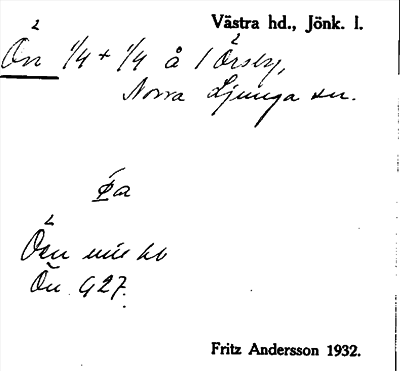 Västra hd., Jönk. l.
Ön 1/4 + 1/4 å 1 Örsby,
Norra Ljunga sn.
Ön
Ön G 27.
Fritz Andersson 1932.